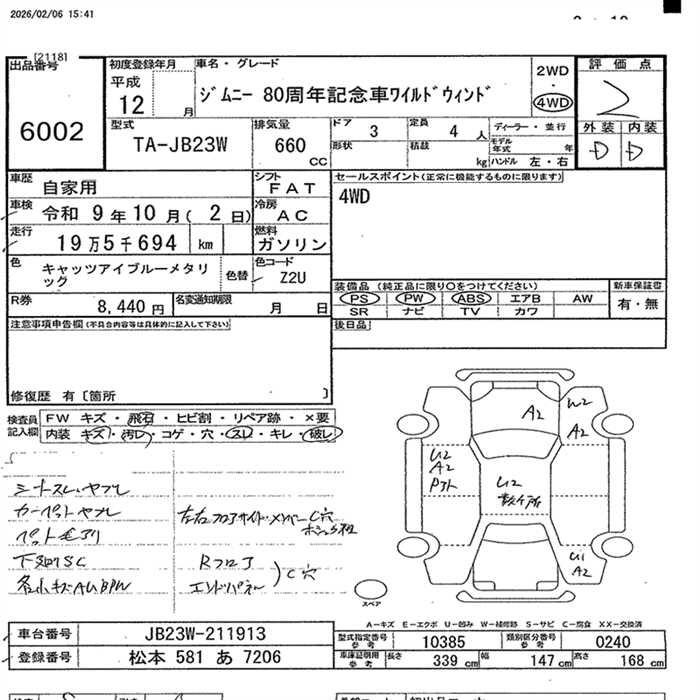 2026/02/06 15:41
[2118]
出品番号
6002
初度登録年月
平成
12 月
車名・グレード
ジムニー 80周年記念車ワイルドウィンド
2WD
・
4WD
評価点
2
外装 内装
D D
型式
TA-JB23W
排気量
660
CC
ドア 3
定員 4 人
形状
積載 kg
ディーラー・並行
モデル年式 年
ハンドル 左・右
車歴
自家用
シフト
FAT
車検
令和 9年 10月( 2日)
冷房
AC
走行
19万5千694 km
燃料
ガソリン
色
キャッツアイブルーメタリック
色替
色コード
Z2U
R券
8,440円
名変通知期限
月 日
セールスポイント(正常に機能するものに限ります)
4WD
装備品(純正品に限り○をつけてください)
PS PW ABS エアB AW
SR ナビ TV カワ
新車保証書
有・無
後日品
注意事項申告欄(不具合内容等は具体的に記入して下さい)
修復歴 有〔箇所 〕
検査員記入欄
FW キズ・飛石・ヒビ割・リペア跡・×要
内装 キズ・汚レ・コゲ・穴・スレ・キレ・破レ
シートスレ・ヤブレ
カーペットヤブレ
ペット毛アリ
下廻りSC
各小キズAUBPW
左右フロアサイド・メンバーC穴
Rフロア
エンドパネル
C穴
A2
W2
A2
U2
A2
U2
U1
A2
スペア
A-キズ E-エクボ U-凹み W-補修跡 S-サビ C-腐食 XX-交換済
車台番号
JB23W-211913
登録番号
松本 581 あ 7206
型式指定番号
参考
10385
類別区分番号
参考
0240
車庫証明用
参考
長さ 339 cm
幅 147 cm
高さ 168 cm